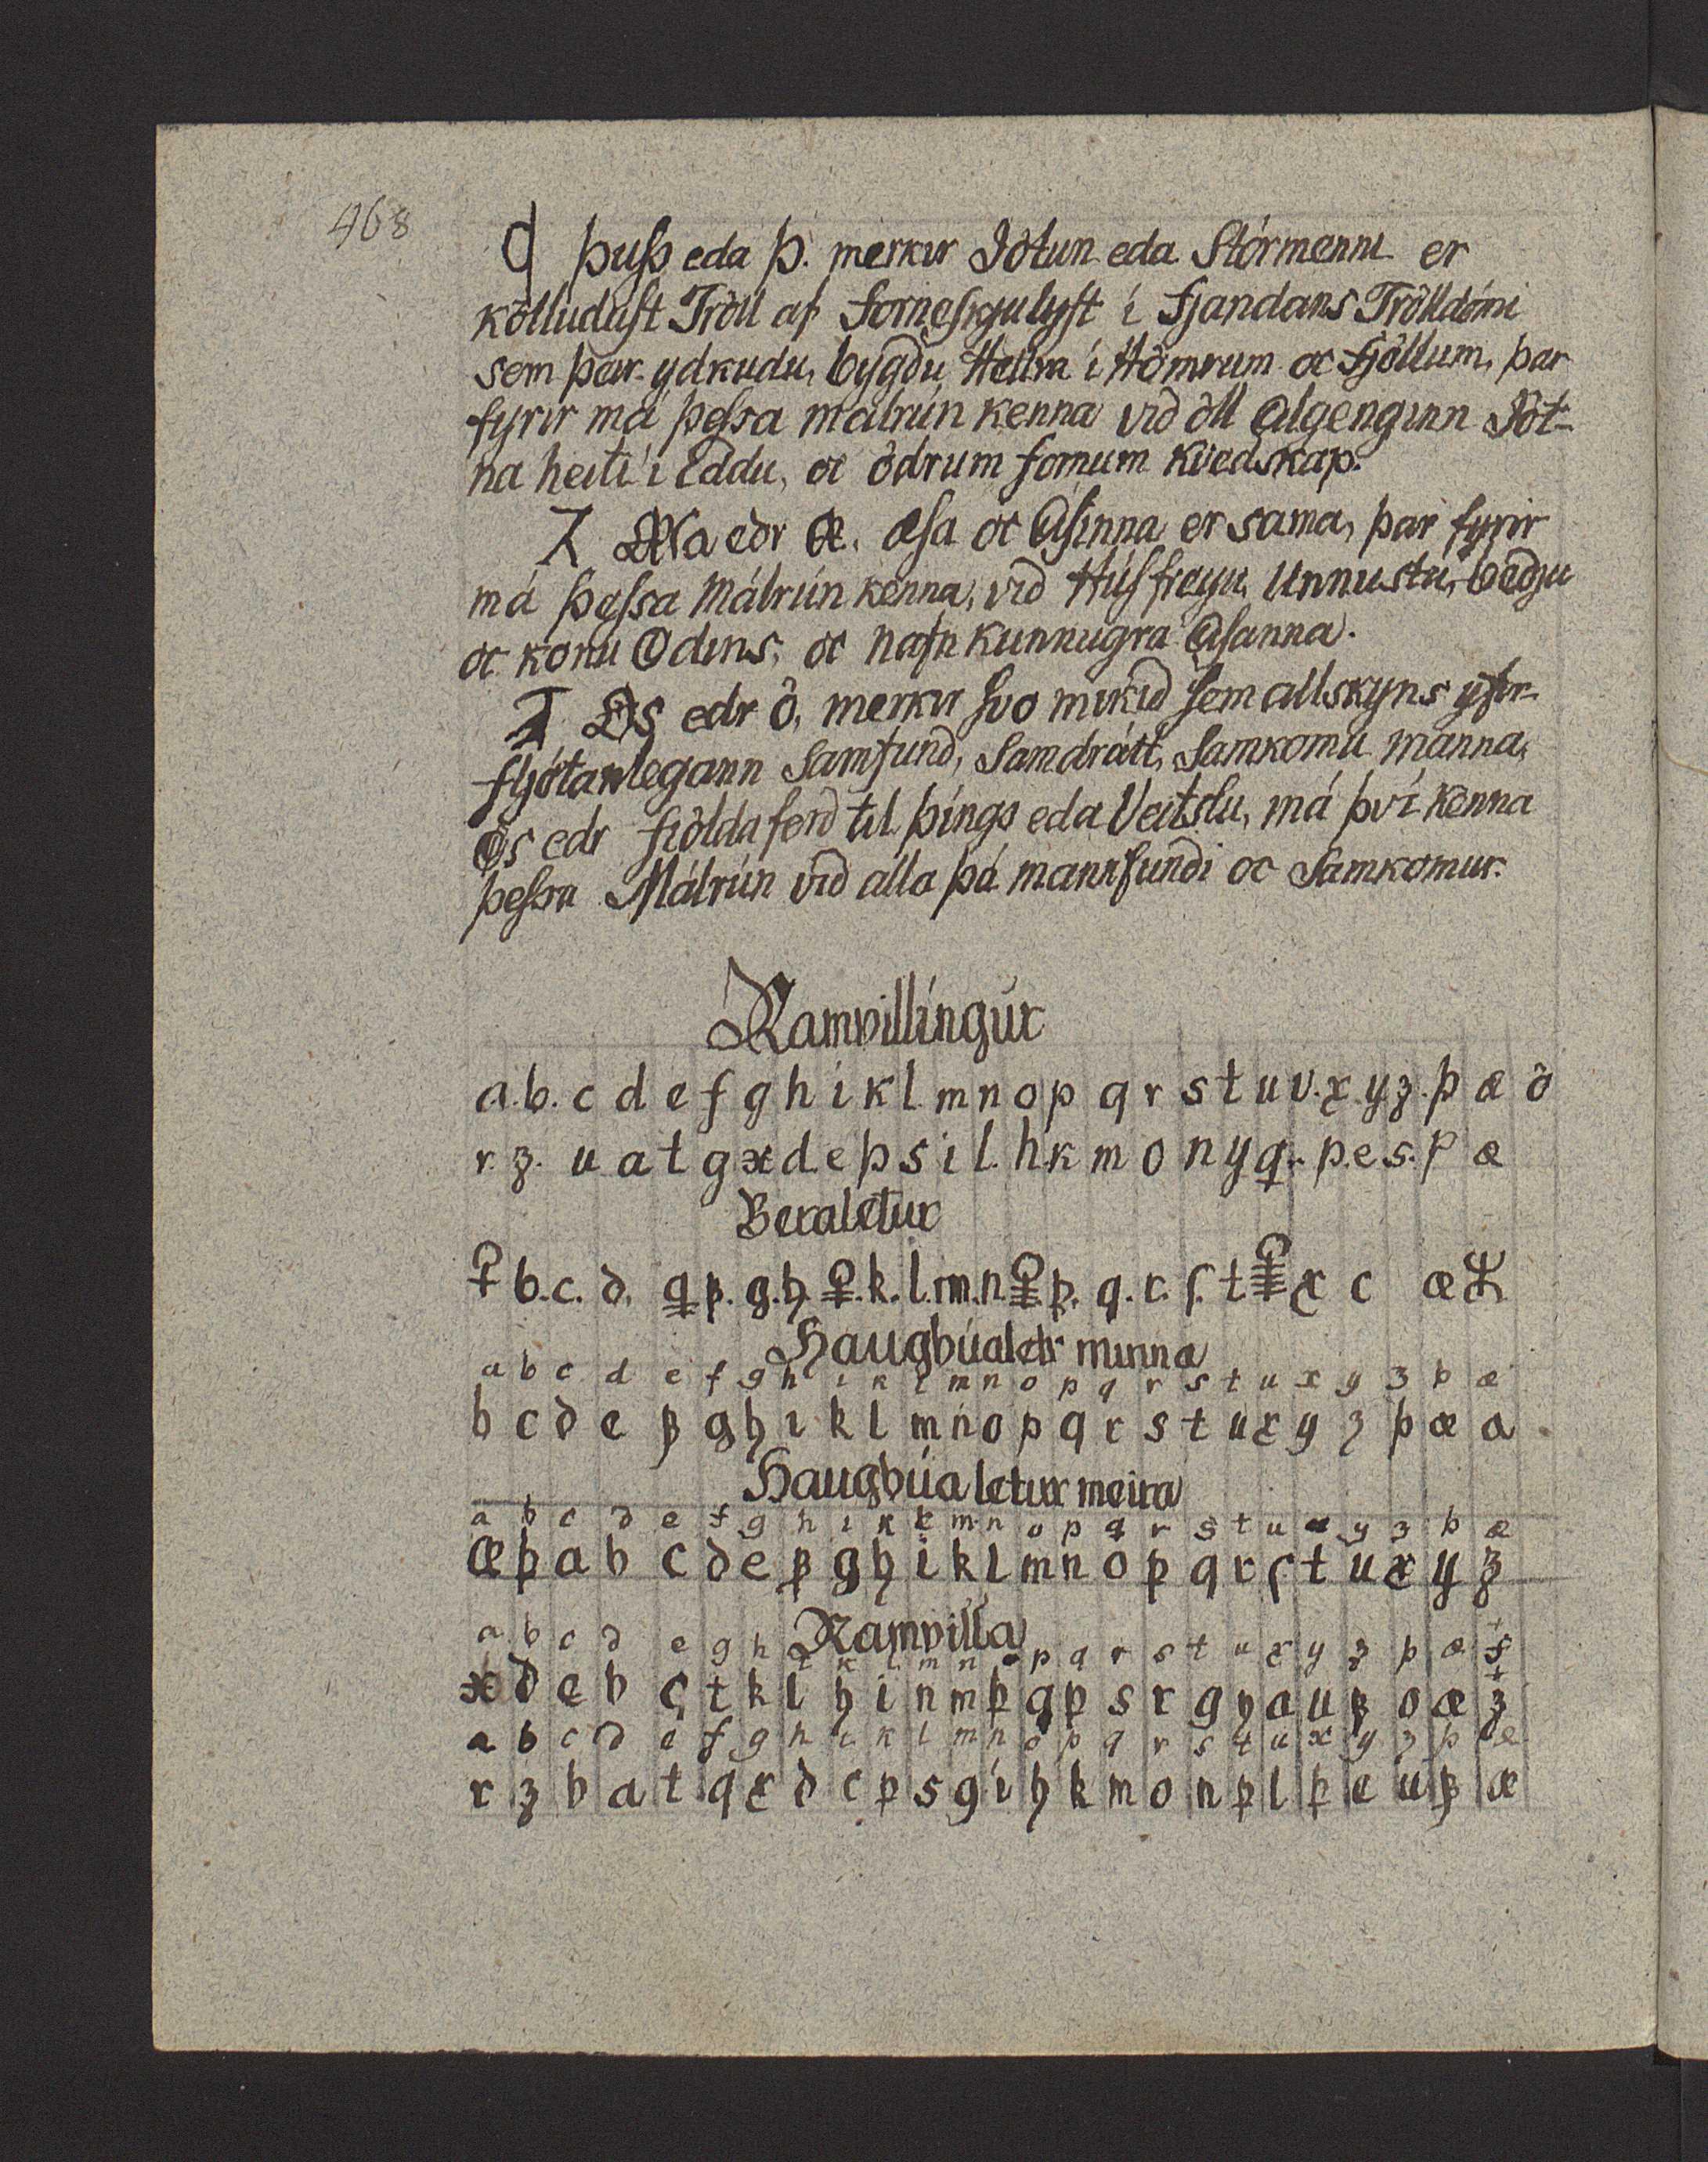 468
þuſs eda þ. merkir Jôtun eda Stórmenni er
kôlluduſt Trôll af forneſkjulyſt í fjandans Trôlldómi
sem þar ydkudu, bygdu Hellra í Hômrum oc fjôllum, þar
fyrir má þeſsa málrún kenna vid ôll Algenginn Jôt-
na heiti í Eddu, oc ôdrum fornum kvedskap.
edr Æ. æſa oc Aſinna er sama, þar fyrir
má þeſsa Málrún kenna, vid Húſfreyu, Unnustu, bedju
oc konu Odins, oc nafn kunnugra Aſanna.
Os edr ô, merkir ſvo mikid ſem allskyns yfir-
fljótanlegann Samfund, Samdrátt, Samkomu manna,
Os edr fiôlda ferd til þings eda Veitslu, má því kenna
þeſsa Málrún vid alla þá mannfundi oc Samkomur.
Ramvillíngur
a. b. c d e f g h i k l m n o p q r s t u v. x. y. z. þ æ ô
r. z. u a t g x d. e þ s i l. h. k m o n y q. r. p. e. s. þ æ
Beraletur
b. c. d. q p. g. h. k. l. m. n. p. q. r. ſ. t x c æ
Haugbúaletr minna
a b c d e f g h i k l m n o p q r s t u x y z þ æ
b c d e f g h i k l m n o p q r s t u x y z þ æ a
Haugbúa letur meira
a b c d e f g h i k l m n o p q r s t u x y z þ æ
æ þ a b c d e f g h i k l m n o p q r ſ t u x y z
Ramvilla
a b c d e g h i k l m n o p q r s t u x y z þ æ f
x d e b c t k l h i n m þ q p s r g y a u f o æ z
a b c d e f g h i k l m n o p q r s t u x y z þ æ
r z b a t q x d c p s g i h k m o n p l þ e u f æ